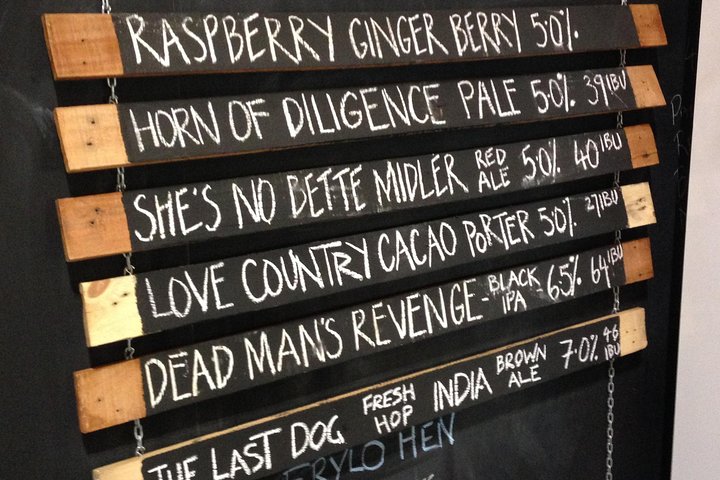 RASPBERRY GINGER BERRY 5.0%
HORN OF DILIGENCE PALE 5.0% 39 IBU
SHE'S NO BETTE MIDLER RED ALE 5.0% 40 IBU
LOVE COUNTRY CACAO PORTER 5.0% 27 IBU
DEAD MAN'S REVENGE - BLACK IPA - 6.5% 64 IBU
THE LAST DOG FRESH HOP INDIA BROWN ALE 7.0% 46 IBU
HEN